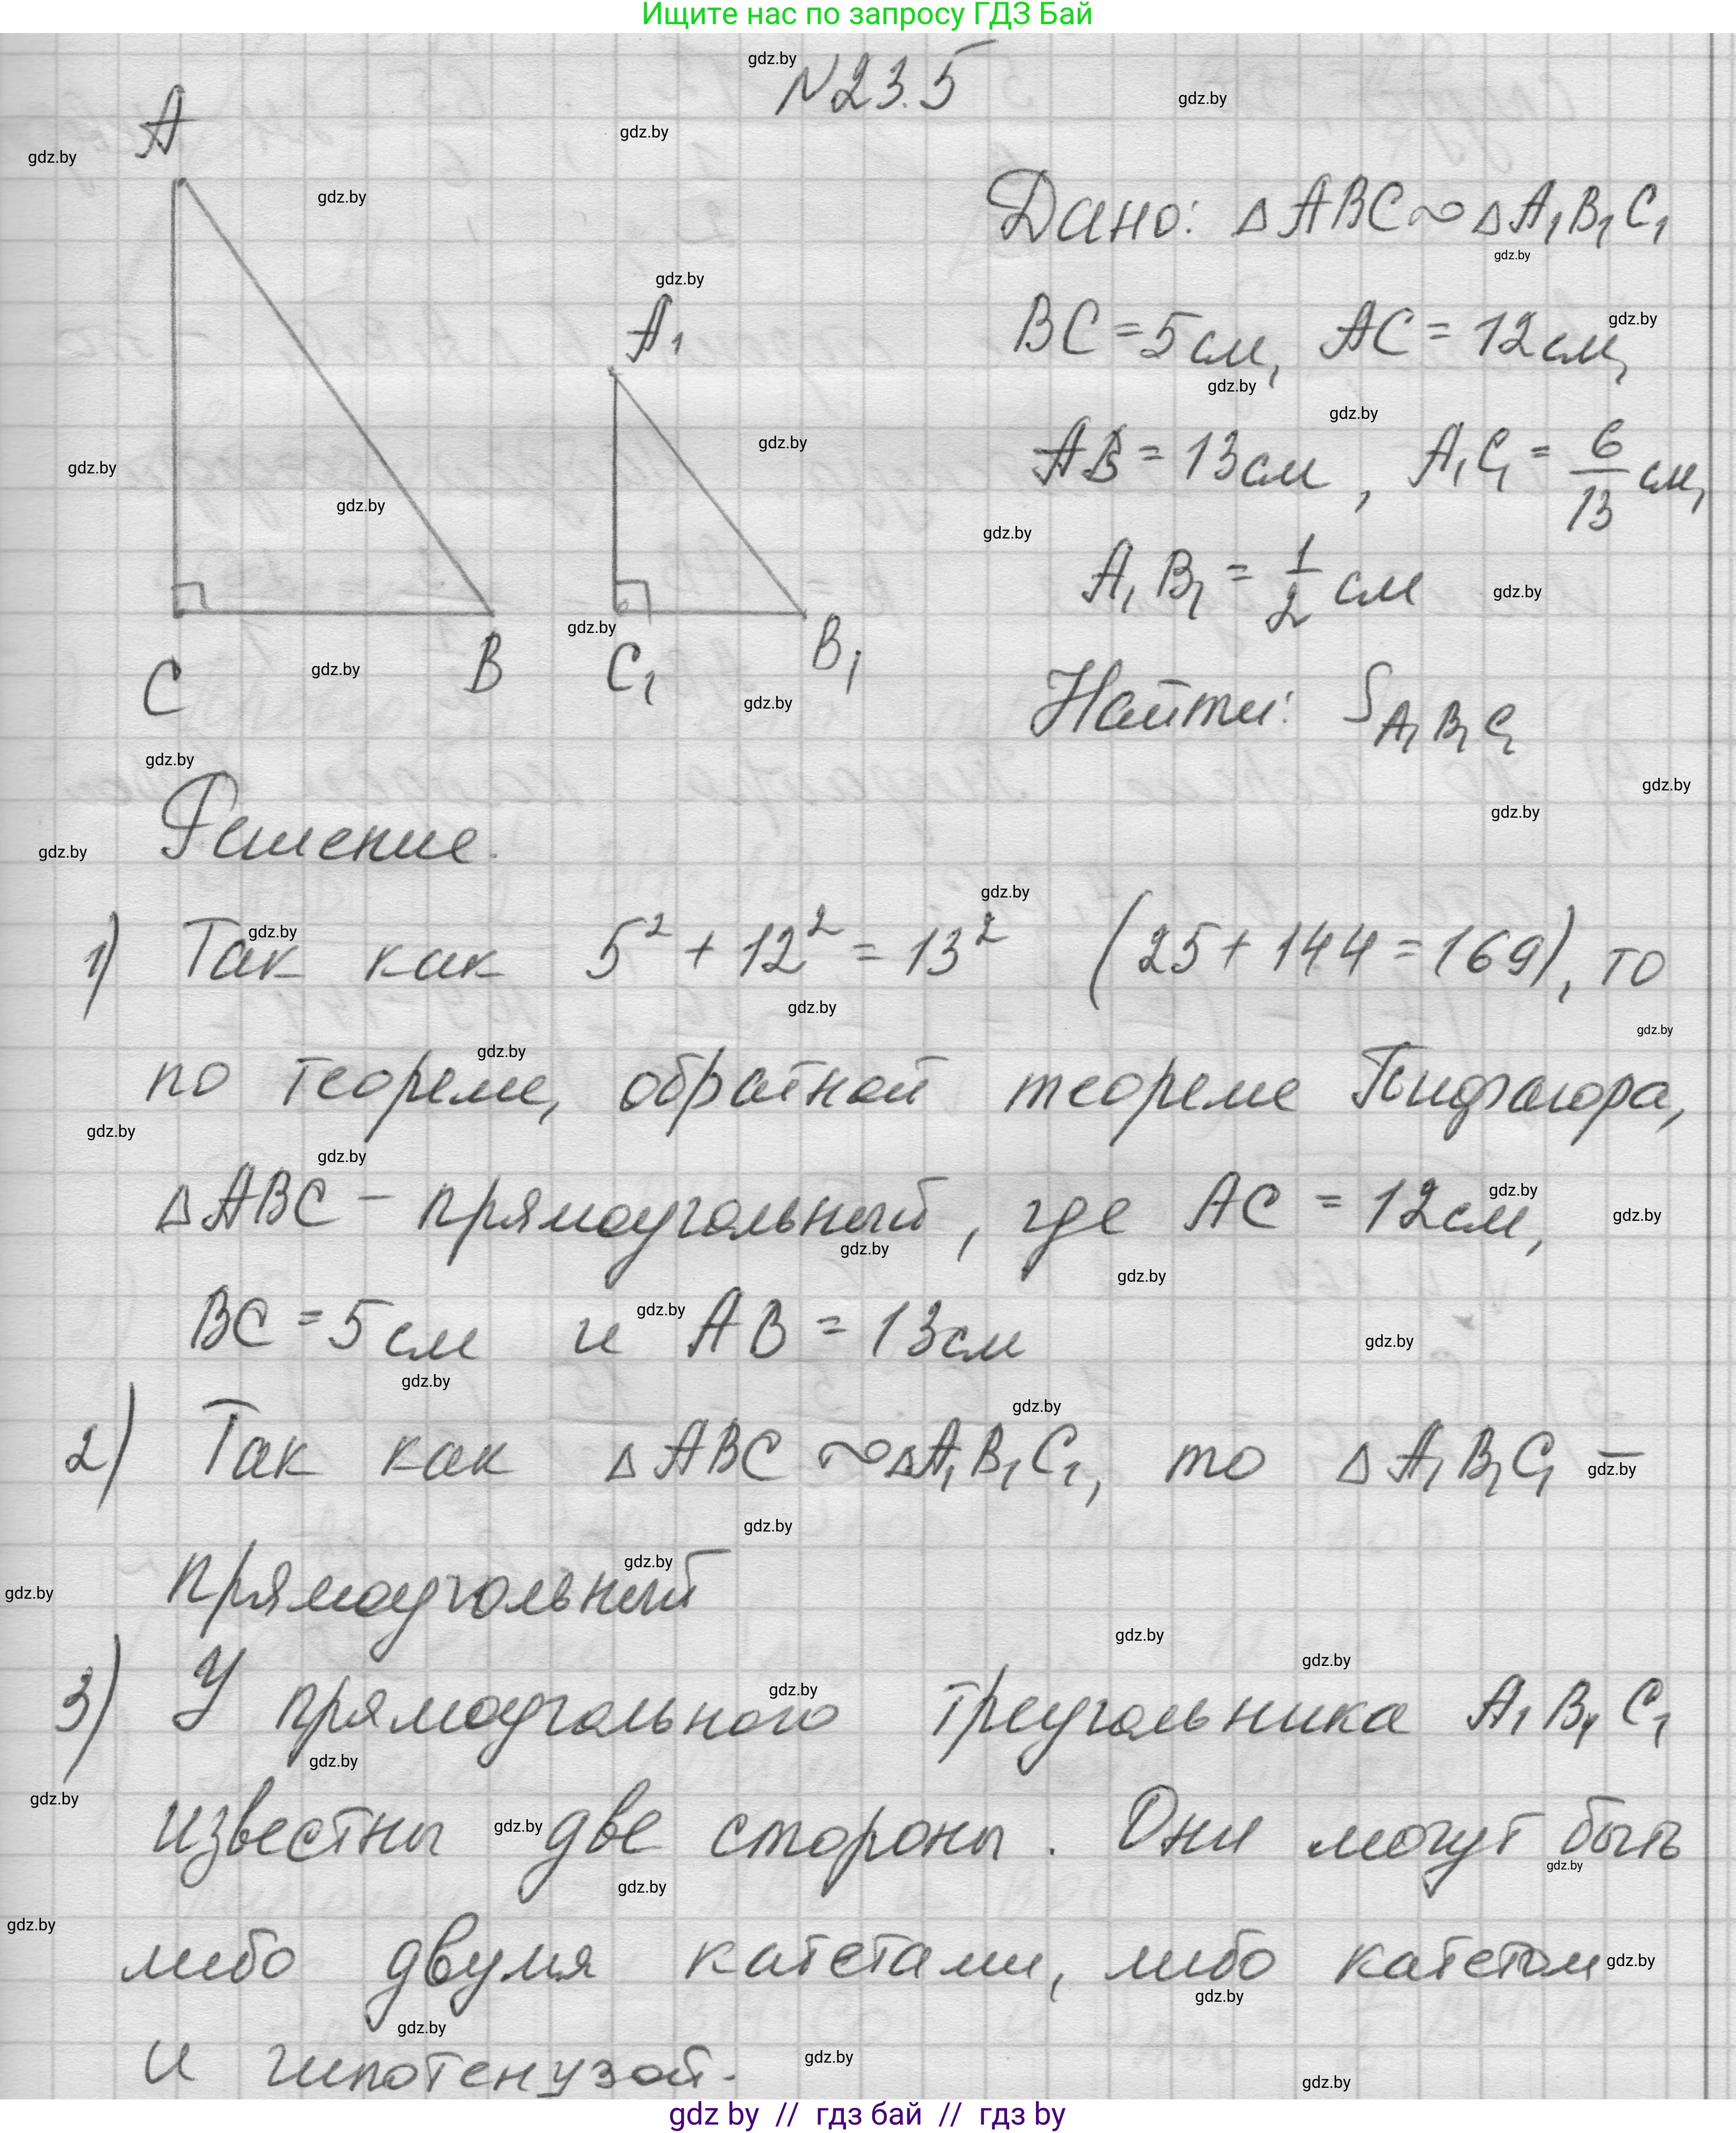 Ищите нас по запросу ГДЗ Бай
№23.5
A
Дано: △ABC∾△A₁B₁C₁
A₁
BC=5см, AC=12см,
AB=13см, A₁C₁=6/13 см,
A₁B₁=1/2 см
C B C₁ B₁
Найти: S A₁B₁C₁
Решение.
1) Так как 5²+12²=13² (25+144=169), то
по теореме, обратной теореме Пифагора,
△ABC – прямоугольный, где AC=12см,
BC=5см и AB=13см
2) Так как △ABC∾△A₁B₁C₁, то △A₁B₁C₁ –
прямоугольный
3) У прямоугольного треугольника A₁B₁C₁
известны две стороны. Они могут быть
либо двумя катетами, либо катетом
и гипотенузой.
gdz by // гдз бай // гдз by